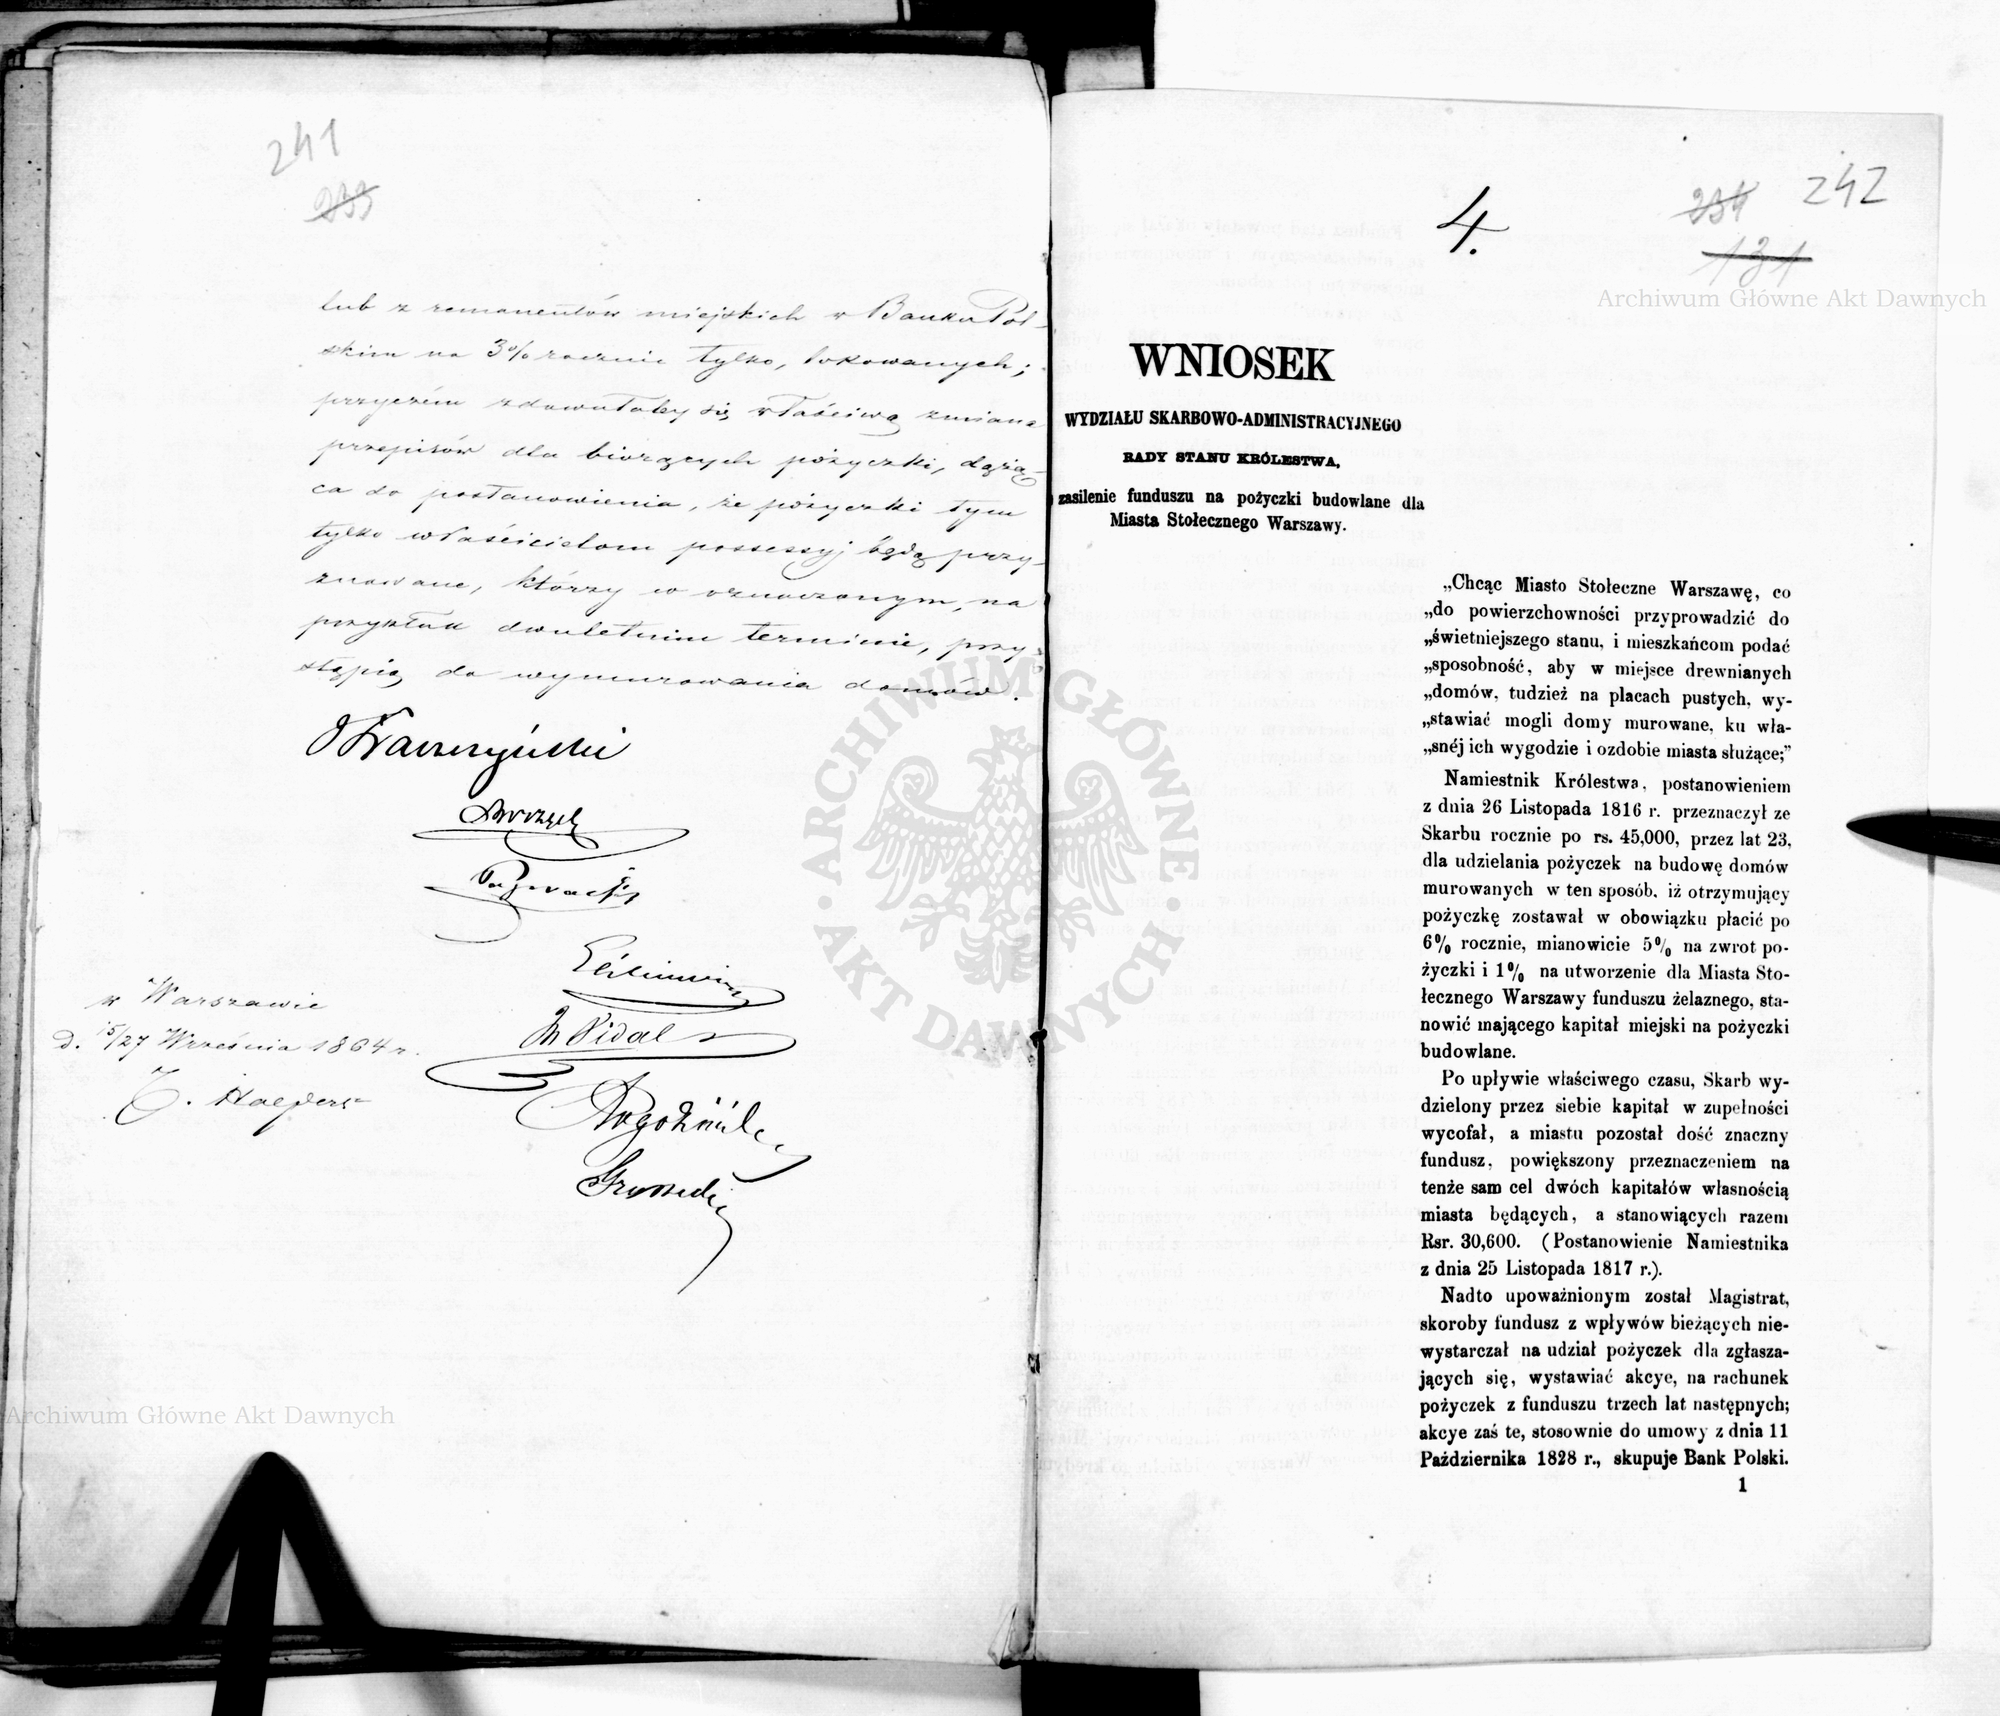 241
233
lub z remanentów miejskich w Banku Pol-
skim na 3% rocznie tylko, lokowanych;
przyczém zdawałaby się właściwą zmiana
przepisów dla biorących pożyczki, dążą-
ca do postanowienia, że pożyczki tym
tylko właścicielom possessyj będą przy-
znawane, którzy w oznaczonym, na
przykład dwuletnim terminie, przy-
stąpią do wymurowania domów.
w Warszawie
d. 15/27 Września 1864 r.
242
234
131
4.
WNIOSEK
WYDZIAŁU SKARBOWO-ADMINISTRACYJNEGO
RADY STANU KRÓLESTWA,
zasilenie funduszu na pożyczki budowlane dla
Miasta Stołecznego Warszawy.
„Chcąc Miasto Stołeczne Warszawę, co
„do powierzchowności przyprowadzić do
„świetniejszego stanu, i mieszkańcom podać
„sposobność, aby w miejsce drewnianych
„domów, tudzież na placach pustych, wy-
„stawiać mogli domy murowane, ku wła-
„snéj ich wygodzie i ozdobie miasta służące;”
Namiestnik Królestwa, postanowieniem
z dnia 26 Listopada 1816 r. przeznaczył ze
Skarbu rocznie po rs. 45,000, przez lat 23,
dla udzielania pożyczek na budowę domów
murowanych w ten sposób, iż otrzymujący
pożyczkę zostawał w obowiązku płacić po
6% rocznie, mianowicie 5% na zwrot po-
życzki i 1% na utworzenie dla Miasta Sto-
łecznego Warszawy funduszu żelaznego, sta-
nowić mającego kapitał miejski na pożyczki
budowlane.
Po upływie właściwego czasu, Skarb wy-
dzielony przez siebie kapitał w zupełności
wycofał, a miastu pozostał dość znaczny
fundusz, powiększony przeznaczeniem na
tenże sam cel dwóch kapitałów własnością
miasta będących, a stanowiących razem
Rsr. 30,600. (Postanowienie Namiestnika
z dnia 25 Listopada 1817 r.).
Nadto upoważnionym został Magistrat,
skoroby fundusz z wpływów bieżących nie-
wystarczał na udział pożyczek dla zgłasza-
jących się, wystawiać akcye, na rachunek
pożyczek z funduszu trzech lat następnych;
akcye zaś te, stosownie do umowy z dnia 11
Października 1828 r., skupuje Bank Polski.
1
Archiwum Główne Akt Dawnych
Archiwum Główne Akt Dawnych
ARCHIWUM GŁÓWNE
AKT DAWNYCH